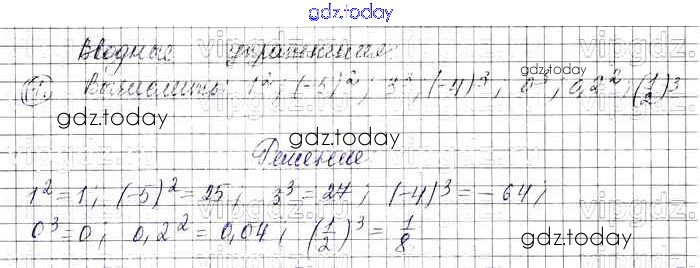 gdz.today
Вводные упражнения
1. Вычислить: 1²; (-5)²; 3³; (-4)³; 0³; 0,2²; (1/2)³
gdz.today
gdz.today
gdz.today
Решение
1² = 1; (-5)² = 25; 3³ = 27; (-4)³ = -64;
0³ = 0; 0,2² = 0,04; (1/2)³ = 1/8
gdz.today